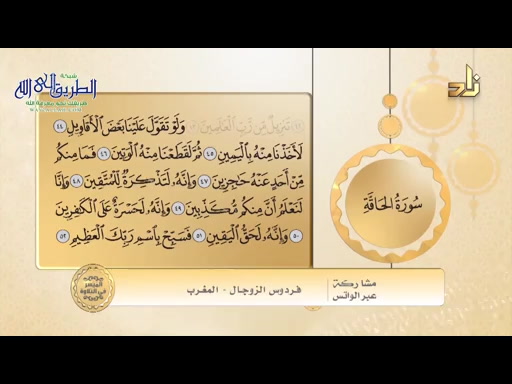 شبكة
الطريق إلى الله
زاد
تَنزِيلٌ مِّن رَّبِّ الْعَالَمِينَ ۝ وَلَوْ تَقَوَّلَ عَلَيْنَا بَعْضَ الْأَقَاوِيلِ ٤٤
لَأَخَذْنَا مِنْهُ بِالْيَمِينِ ٤٥ ثُمَّ لَقَطَعْنَا مِنْهُ الْوَتِينَ ٤٦ فَمَا مِنكُم
مِّنْ أَحَدٍ عَنْهُ حَاجِزِينَ ٤٧ وَإِنَّهُ لَتَذْكِرَةٌ لِّلْمُتَّقِينَ ٤٨ وَإِنَّا
لَنَعْلَمُ أَنَّ مِنكُم مُّكَذِّبِينَ ٤٩ وَإِنَّهُ لَحَسْرَةٌ عَلَى الْكَافِرِينَ
٥٠ وَإِنَّهُ لَحَقُّ الْيَقِينِ ٥١ فَسَبِّحْ بِاسْمِ رَبِّكَ الْعَظِيمِ ٥٢
سُورَةُ الْحَاقَّةِ
مشاركة
عبر الواتس
فردوس الزوجال - المغرب
الميسر
في التلاوة